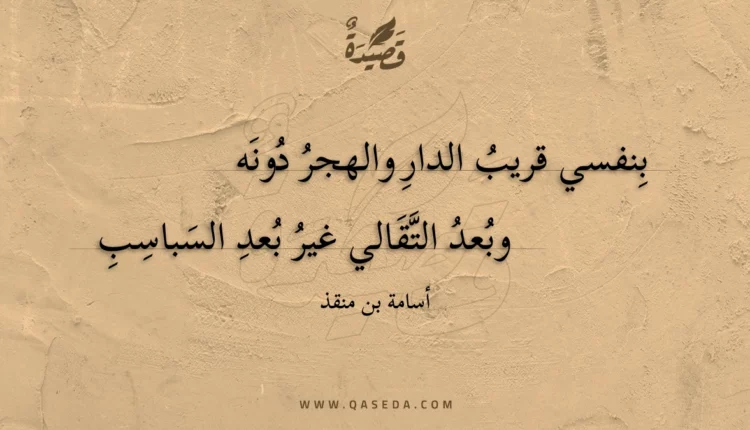 قَصِيدَةٌ
بِنفسي قريبُ الدارِ والهجرُ دُونَه
وبُعدُ التَّقَالي غيرُ بُعدِ السَباسِبِ
أسامة بن منقذ
WWW.QASEDA.COM